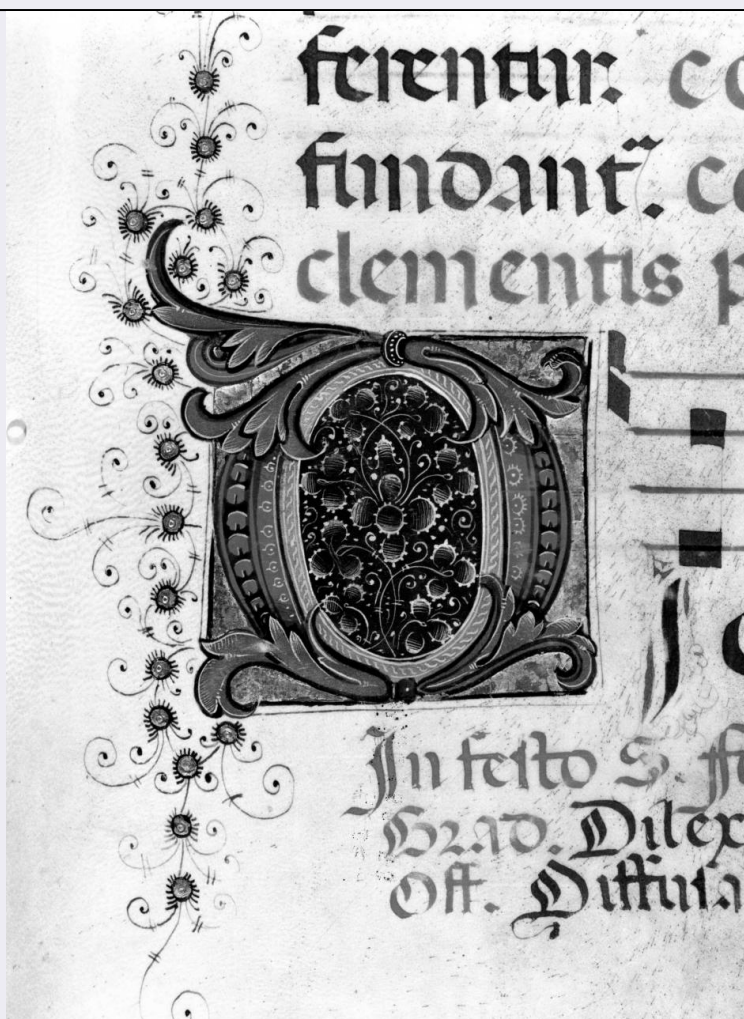 ferentur. co
fundant̃. co
clementis p
D
In festo S. ff
Grad. Dilex
Off. Diffusa